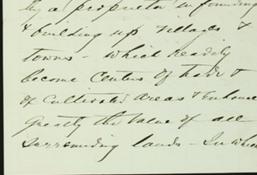 by a proprietor in founding
& building up villages &
towns - which readily
become centers of trade &
of cultivated areas & enhance
greatly the value of all
surrounding lands - In which